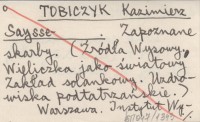 TOBICZYK Kazimierz
Saysse- . Zapoznane
skarby. (Źródła Wysowy.
Wieliczka jako światowy
Zakład solankowy. Uzdro-
wiska podtatrzańskie.)
Warszawa. Instytut Wy-